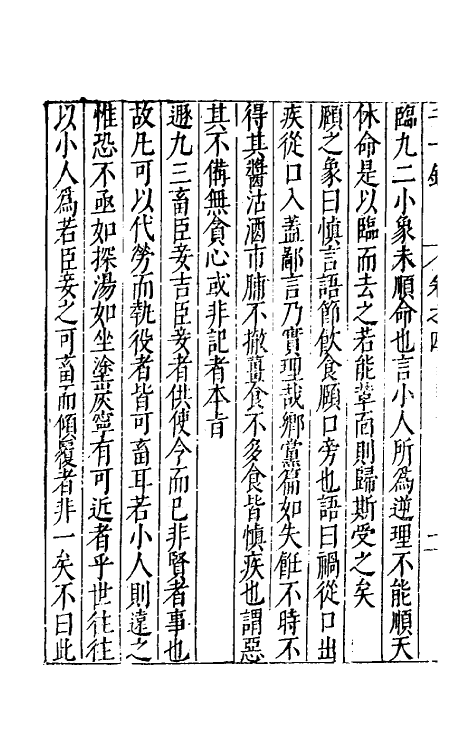 卷之四
臨九二小象未順命也言小人所為逆理不能順天
休命是以臨而去之若能革面則歸斯受之矣
頤之象曰慎言語節飲食頤口旁也語曰禍從口出
疾從口入蓋鄙言乃實理哉鄉黨篇如失飪不時不
得其醬沽酒市脯不撤薑食不多食皆慎疾也謂惡
其不備無貪心或非記者本旨
遯九三畜臣妾吉臣妾者供使令而已非賢者事也
故凡可以代勞而執役者皆可畜耳若小人則遠之
惟恐不亟如探湯如坐塗炭寧有可近者乎世往往
以小人為若臣妾之可畜而傾覆者非一矣不曰此